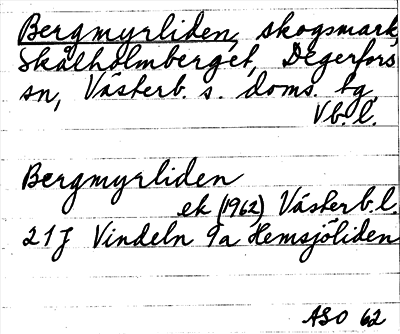 Bergmyrliden, skogsmark,
Skålholmberget, Degerfors
sn, Västerb. s. doms. tg
Vb. l.
Bergmyrliden
ek (1962) Västerb. l.
21J Vindeln 9a Hemsjöliden
ASO 62